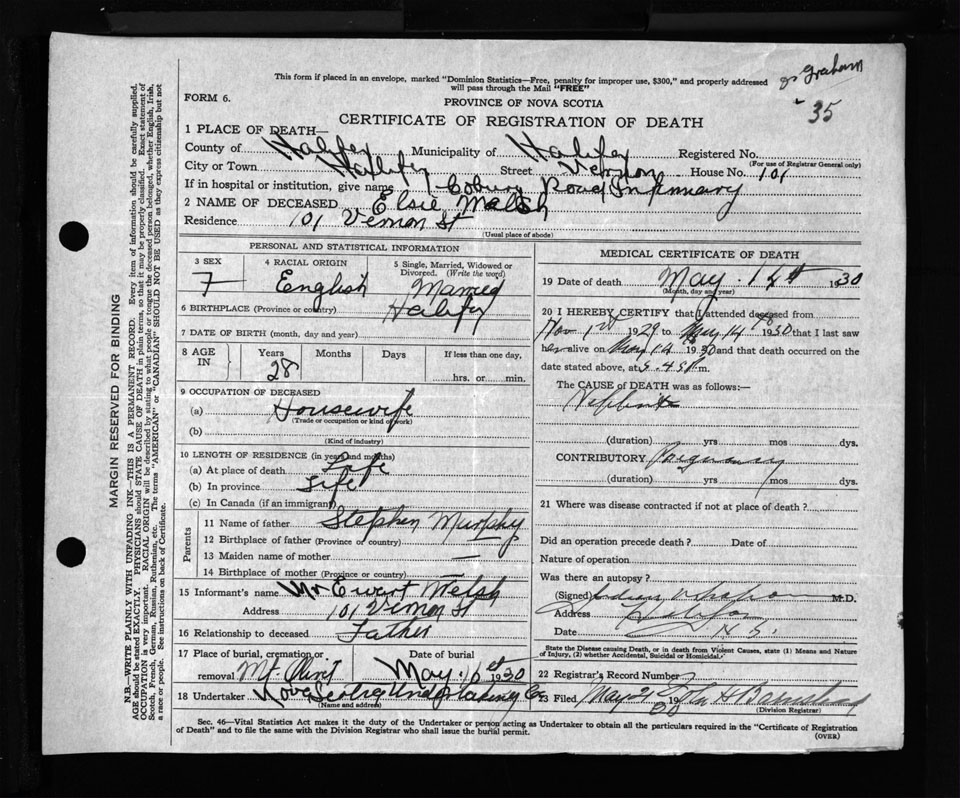 This form if placed in an envelope, marked "Dominion Statistics—Free, penalty for improper use, $300," and properly addressed
will pass through the Mail "FREE"
Graham
35
FORM 6.
PROVINCE OF NOVA SCOTIA
CERTIFICATE OF REGISTRATION OF DEATH
1 PLACE OF DEATH—
County of Halifax Municipality of Halifax Registered No.
(For use of Registrar General only)
City or Town Halifax Street Vernon House No. 101
If in hospital or institution, give name Coburg Road Infirmary
2 NAME OF DECEASED Elsie Welsh
Residence 101 Vernon St
(Usual place of abode)
PERSONAL AND STATISTICAL INFORMATION
3 SEX 4 RACIAL ORIGIN 5 Single, Married, Widowed or Divorced. (Write the word)
F English Married
6 BIRTHPLACE (Province or country) Halifax
7 DATE OF BIRTH (month, day and year)
8 AGE IN Years Months Days If less than one day,
28 hrs. or min.
9 OCCUPATION OF DECEASED
(a) Housewife
(Trade or occupation or kind of work)
(b)
(Kind of industry)
10 LENGTH OF RESIDENCE (in years and months)
(a) At place of death Life
(b) In province Life
(c) In Canada (if an immigrant)
Parents
11 Name of father Stephen Murphy
12 Birthplace of father (Province or country) —
13 Maiden name of mother —
14 Birthplace of mother (Province or country) —
15 Informant's name Mr Ewart Welsh
Address 101 Vernon St
16 Relationship to deceased Father
17 Place of burial, cremation or removal Mt. Olivet Date of burial May 16 1930
18 Undertaker Nova Scotia Undertaking Co
(Name and address)
MEDICAL CERTIFICATE OF DEATH
19 Date of death May 14th 1930
(Month, day and year)
20 I HEREBY CERTIFY that I attended deceased from
Nov 1st 1929 to May 14 1930 that I last saw
her alive on May 14 1930 and that death occurred on the
date stated above, at 5.45 m.
The CAUSE of DEATH was as follows:—
Nephritis
(duration) yrs mos dys.
CONTRIBUTORY Pregnancy
(duration) yrs mos dys.
21 Where was disease contracted if not at place of death?
Did an operation precede death? Date of
Nature of operation
Was there an autopsy?
(Signed) M.D.
Address Halifax
Date N.S.
State the Disease causing Death, or in death from Violent Causes, state (1) Means and Nature
of Injury, (2) whether Accidental, Suicidal or Homicidal.
22 Registrar's Record Number
23 Filed May 21 19
(Division Registrar)
Sec. 46—Vital Statistics Act makes it the duty of the Undertaker or person acting as Undertaker to obtain all the particulars required in the "Certificate of Registration
of Death" and to file the same with the Division Registrar who shall issue the burial permit.
(OVER)
MARGIN RESERVED FOR BINDING
N.B.—WRITE PLAINLY WITH UNFADING INK—THIS IS A PERMANENT RECORD. Every item of information should be carefully supplied.
AGE should be stated EXACTLY. PHYSICIANS should STATE CAUSE OF DEATH in plain terms, so that it may be properly classified. Exact statement of
OCCUPATION is very important. RACIAL ORIGIN will be described by stating to what people or tongue the deceased person belonged, whether English, Irish,
Scotch, French, German, Russian, Ruthenian, etc. The terms "AMERICAN" or "CANADIAN" SHOULD NOT BE USED as they express citizenship but not
a race or people. See instructions on back of Certificate.